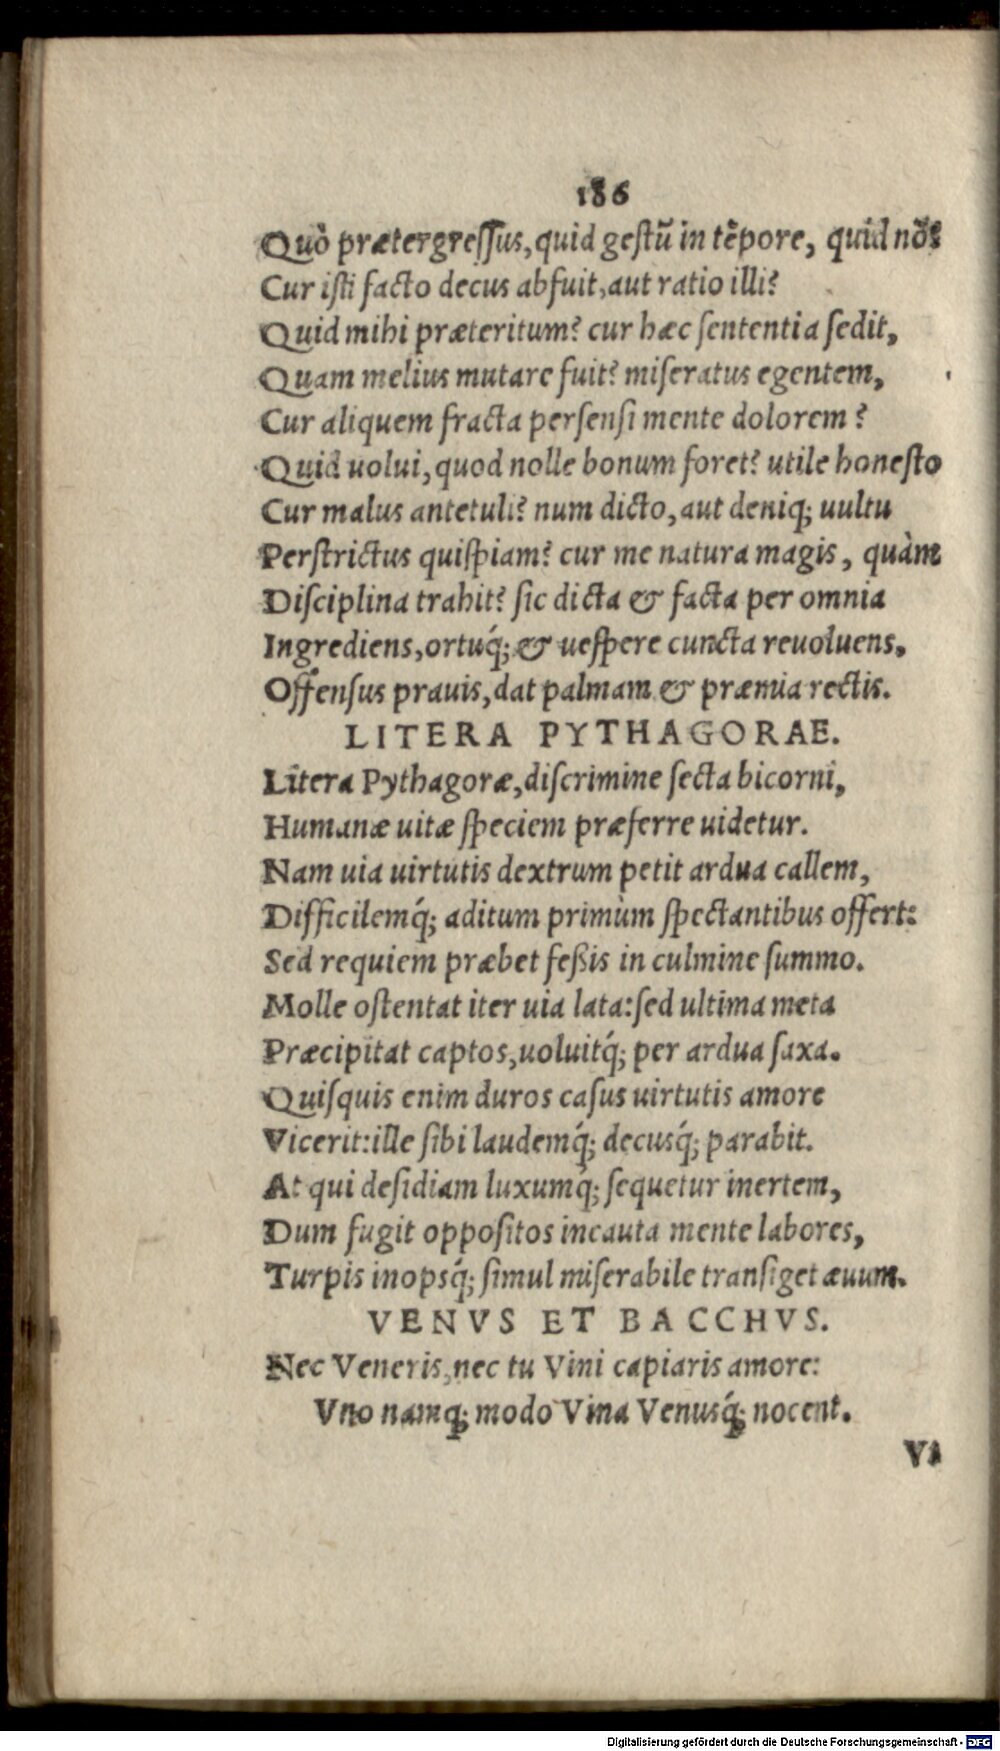 186
Quò prætergreſſus, quid geſtũ in tẽpore, quid nõ?
Cur iſti facto decus abfuit, aut ratio illi?
Quid mihi præteritum? cur hæc ſententia ſedit,
Quam melius mutare fuit? miſeratus egentem,
Cur aliquem fracta perſenſi mente dolorem?
Quid uolui, quod nolle bonum foret? utile honeſto
Cur malus antetuli? num dicto, aut deniq; uultu
Perſtrictus quiſpiam? cur me natura magis, quàm
Diſciplina trahit? ſic dicta & facta per omnia
Ingrediens, ortuq́; & ueſpere cuncta reuoluens,
Offenſus prauis, dat palmam & præmia rectis.
LITERA PYTHAGORAE.
Litera Pythagoræ, diſcrimine ſecta bicorni,
Humanæ uitæ ſpeciem præferre uidetur.
Nam uia uirtutis dextrum petit ardua callem,
Difficilemq́; aditum primùm ſpectantibus offert:
Sed requiem præbet feßis in culmine ſummo.
Molle oſtentat iter uia lata: ſed ultima meta
Præcipitat captos, uoluitq́; per ardua ſaxa.
Quiſquis enim duros caſus uirtutis amore
Vicerit: ille ſibi laudemq́; decusq́; parabit.
At qui deſidiam luxumq́; ſequetur inertem,
Dum fugit oppoſitos incauta mente labores,
Turpis inopsq́; ſimul miſerabile tranſiget æuum.
VENVS ET BACCHVS.
Nec Veneris, nec tu Vini capiaris amore:
Vno namq; modo Vina Venusq́; nocent.
Vt
Digitalisierung gefördert durch die Deutsche Forschungsgemeinschaft - DFG